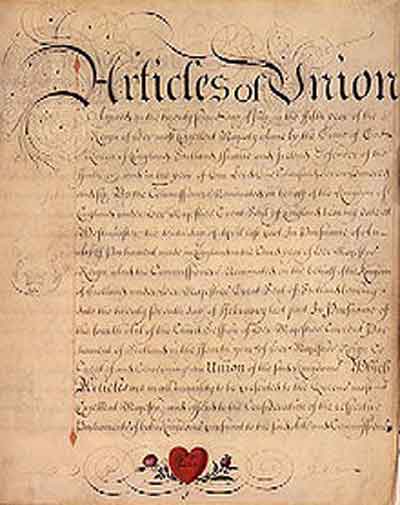 Articles of Union
Agreed on the twenty Second day of July in the Fifth year of the
Reign of Her most Excellent Majesty Anne by the Grace of God
Queen of England Scotland France and Ireland Defender of the
Faith &c and in the year of Our Lord One thousand Seven hundred
and Six By the Commissioners Nominated on behalf of the Kingdom of
England under Her Majesties Great Seal of England bearing date at
Westminster the tenth day of April last past In Pursuance of
Act of Parliament made in England in the third year of Her Majesties
Reign And the Commissioners Nominated on the behalf of the Kingdom
of Scotland under Her Majesties Great Seal of Scotland bearing
date the twenty Seventh day of February last past In Pursuance of
the fourth Act of the third Session of Her Majesties Current Par
liament of Scotland in the year of Her Majesties Reign
and Concerning an Union of the said Kingdoms Which
Articles are in all humility to be presented to the Queens most
Excellent Majesty and offered to the Consideration of the respective
Parliaments of both Kingdoms pursuant to the said Acts and Commissions